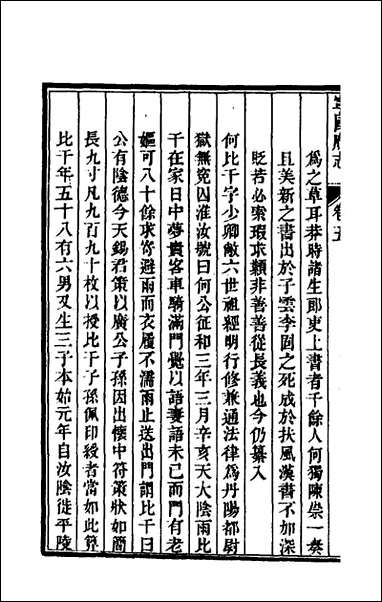 寧國府志 卷五
爲之草耳莽時諸生郎吏上書者千餘人何獨陳崇一奏
且美新之書出於子雲李固之死成於扶風漢書不加深
貶若必索瑕求類非善善從長義也今仍纂入
何比干字少卿敞六世祖經明行修兼通法律爲丹陽都尉
獄無冤囚淮汝號曰何公征和三年三月辛亥天大陰雨比
干在家日中夢貴客車騎滿門覺以語妻語未已而門有老
嫗可八十餘求寄避雨雨而衣履不濡雨止送出門謂比干曰
公有陰德今天錫君策以廣公子孫因出懷中符策狀如簡
長九寸凡九百九十枚以授比干子孫佩印綬者當如此算
比干年五十八有六男又生三子本始元年自汝陰徙平陵